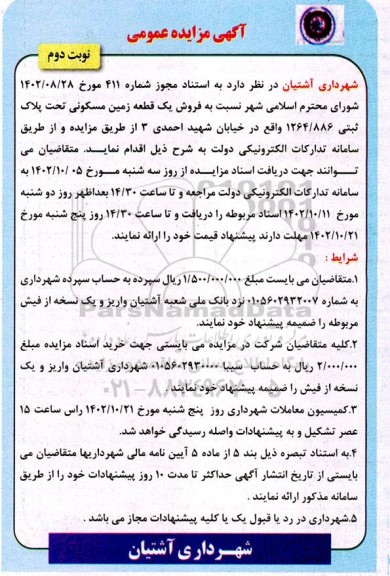 آگهی مزایده عمومی
نوبت دوم
شهرداری آشتیان در نظر دارد به استناد مجوز شماره ۴۱۱ مورخ ۱۴۰۲/۰۸/۲۸
شورای محترم اسلامی شهر نسبت به فروش یک قطعه زمین مسکونی تحت پلاک
ثبتی ۱۲۶۴/۸۸۶ واقع در خیابان شهید احمدی ۳ از طریق مزایده و از طریق
سامانه تدارکات الکترونیکی دولت به شرح ذیل اقدام نماید. متقاضیان می
توانند جهت دریافت اسناد مزایده از روز سه شنبه مورخ ۰۵ /۱۴۰۲/۱۰ به
سامانه تدارکات الکترونیکی دولت مراجعه و تا ساعت ۱۴/۳۰ بعداظهر روز دو شنبه
مورخ ۱۴۰۲/۱۰/۱۱ اسناد مربوطه را دریافت و تا ساعت ۱۴/۳۰ روز پنج شنبه مورخ
۱۴۰۲/۱۰/۲۱ مهلت دارند پیشنهاد قیمت خود را ارائه نمایند.
شرایط :
۱.متقاضیان می بایست مبلغ ۱/۵۰۰/۰۰۰/۰۰۰ ریال سپرده به حساب سپرده شهرداری
به شماره ۰۱۰۵۶۰۲۹۳۲۰۰۷ نزد بانک ملی شعبه آشتیان واریز و یک نسخه از فیش
مربوطه را ضمیمه پیشنهاد خود نمایند.
۲.کلیه متقاضیان شرکت در مزایده می بایستی جهت خرید اسناد مزایده مبلغ
۲/۰۰۰/۰۰۰ ریال به حساب سیبا ۰۱۰۵۶۰۲۹۳۰۰۰۰ شهرداری آشتیان واریز و یک
نسخه از فیش را ضمیمه پیشنهاد خود نمایند.
۳.کمیسیون معاملات شهرداری روز پنج شنبه مورخ ۱۴۰۲/۱۰/۲۱ راس ساعت ۱۵
عصر تشکیل و به پیشنهادات واصله رسیدگی خواهد شد.
۴.به استناد تبصره ذیل بند ۵ از ماده ۵ آیین نامه مالی شهرداریها متقاضیان می
بایستی از تاریخ انتشار آگهی حداکثر تا مدت ۱۰ روز پیشنهادات خود را از طریق
سامانه مذکور ارائه نمایند .
۵.شهرداری در رد یا قبول یک یا کلیه پیشنهادات مجاز می باشد .
شهرداری آشتیان
ParsNamadData